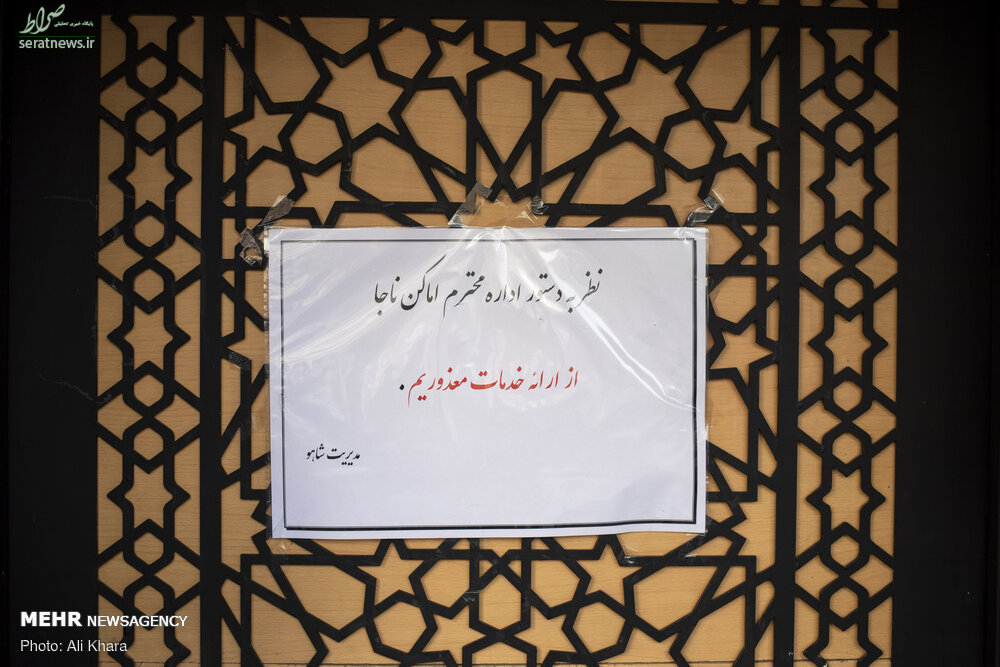 صراط
پایگاه خبری تحلیلی
seratnews.ir
نظر به دستور اداره محترم اماکن ناجا
از ارائه خدمات معذوریم .
مدیریت شاهو
MEHR NEWSAGENCY
Photo: Ali Khara